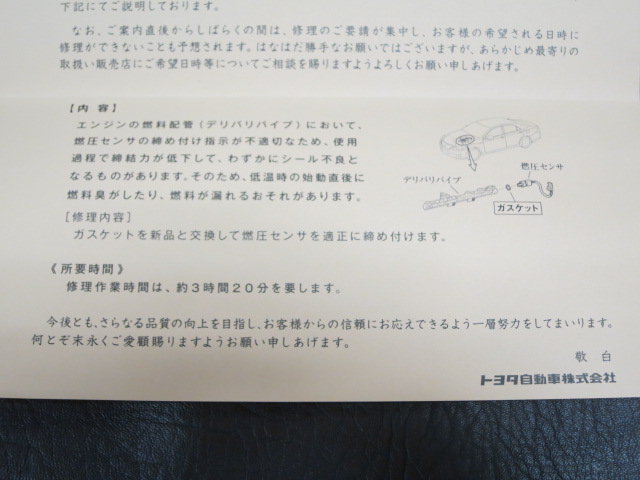 下記にてご説明しております。
なお、ご案内直後からしばらくの間は、修理のご要請が集中し、お客様の希望される日時に
修理ができないことも予想されます。はなはだ勝手なお願いではございますが、あらかじめ最寄りの
取扱い販売店にご希望日時等についてご相談を賜りますようよろしくお願い申しあげます。
【内 容】
エンジンの燃料配管（デリバリパイプ）において、
燃圧センサの締め付け指示が不適切なため、使用
過程で締結力が低下して、わずかにシール不良と
なるものがあります。そのため、低温時の始動直後に
燃料臭がしたり、燃料が漏れるおそれがあります。
燃圧センサ
デリバリパイプ
ガスケット
［修理内容］
ガスケットを新品と交換して燃圧センサを適正に締め付けます。
《所要時間》
修理作業時間は、約３時間２０分を要します。
今後とも、さらなる品質の向上を目指し、お客様からの信頼にお応えできるよう一層努力をしてまいります。
何とぞ末永くご愛顧賜りますようお願い申しあげます。
敬 白
トヨタ自動車株式会社